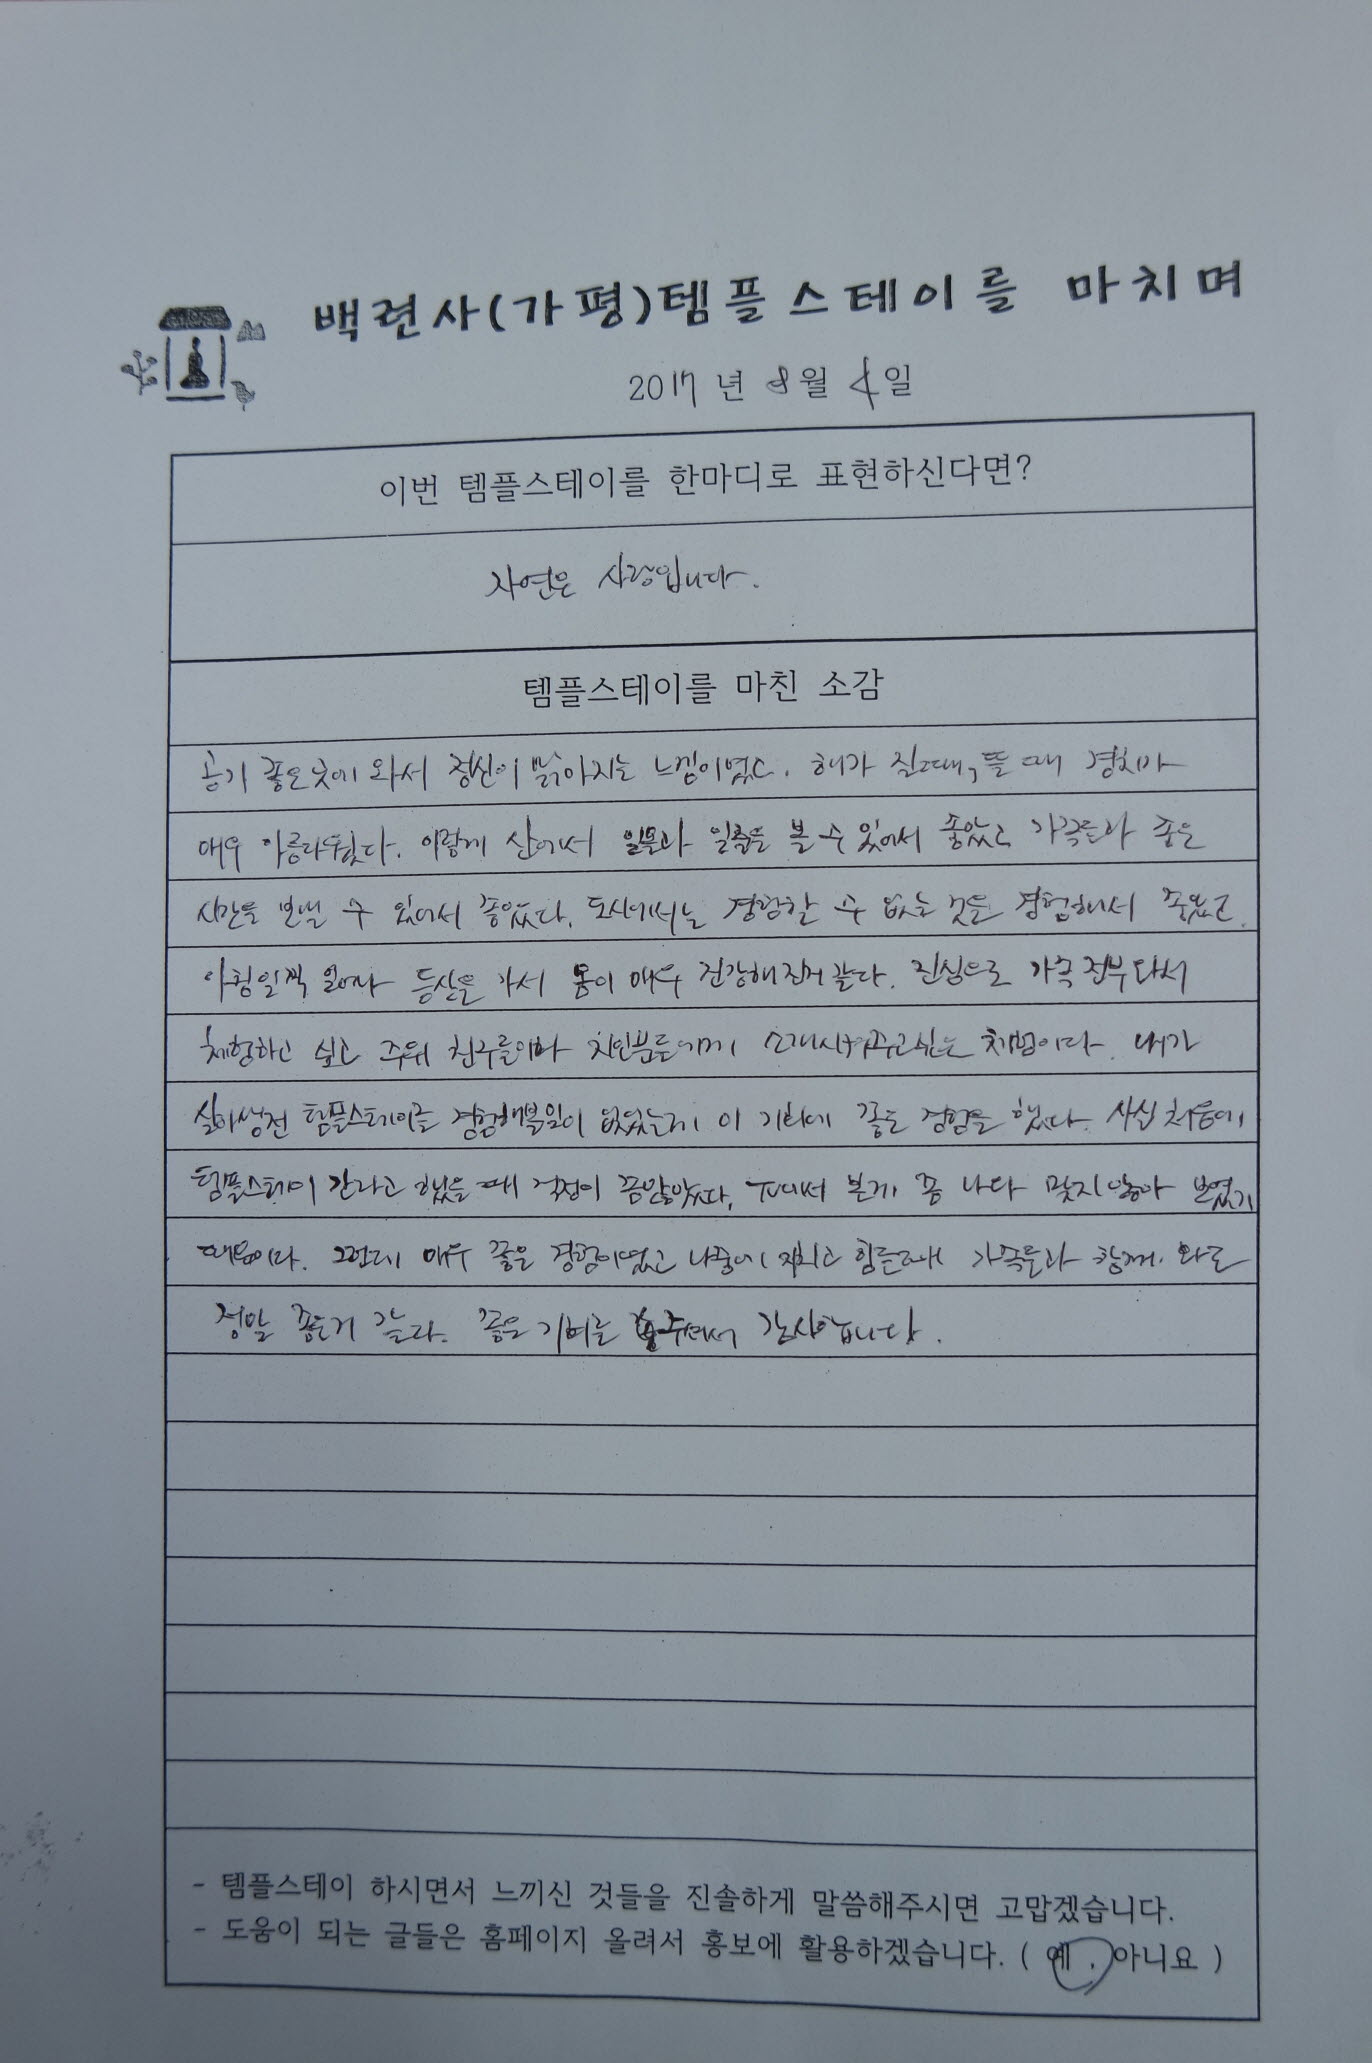 백련사(가평)템플스테이를 마치며
2017년 8월 4일
이번 템플스테이를 한마디로 표현하신다면?
자연은 사랑입니다.
템플스테이를 마친 소감
공기 좋은 곳에 와서 정신이 맑아지는 느낌이였고. 해가 질때, 뜰 때 경치가
매우 아름다웠다. 이렇게 산에서 일몰과 일출을 볼 수 있어서 좋았고 가족들과 좋은
시간을 보낼 수 있어서 좋았다. 도시에서는 경험할 수 없는 것들 경험해서 좋았고.
아침일찍 일어나 등산을 가서 몸이 매우 건강해진거 같다. 진심으로 가족 전부 와서
체험하고 싶고 주위 친구들이나 지인분들에게 소개시켜주고싶은 체험이다. 내가
살아생전 템플스테이를 경험해볼일이 없었는데 이 기회에 좋은 경험을 했다. 사실 처음에
템플스테이 간다고 했을 때 걱정이 좀많았다. TV에서 본게 좀 나다 맞지않아 보였기
때문이다. 그런데 매우 좋은 경험이였고 나중에 지치고 힘들때 가족들과 함께 와도
정말 좋을거 같다. 좋은 기회를 주셔서 감사합니다.
- 템플스테이 하시면서 느끼신 것들을 진솔하게 말씀해주시면 고맙겠습니다.
- 도움이 되는 글들은 홈페이지 올려서 홍보에 활용하겠습니다. ( 예 , 아니요 )